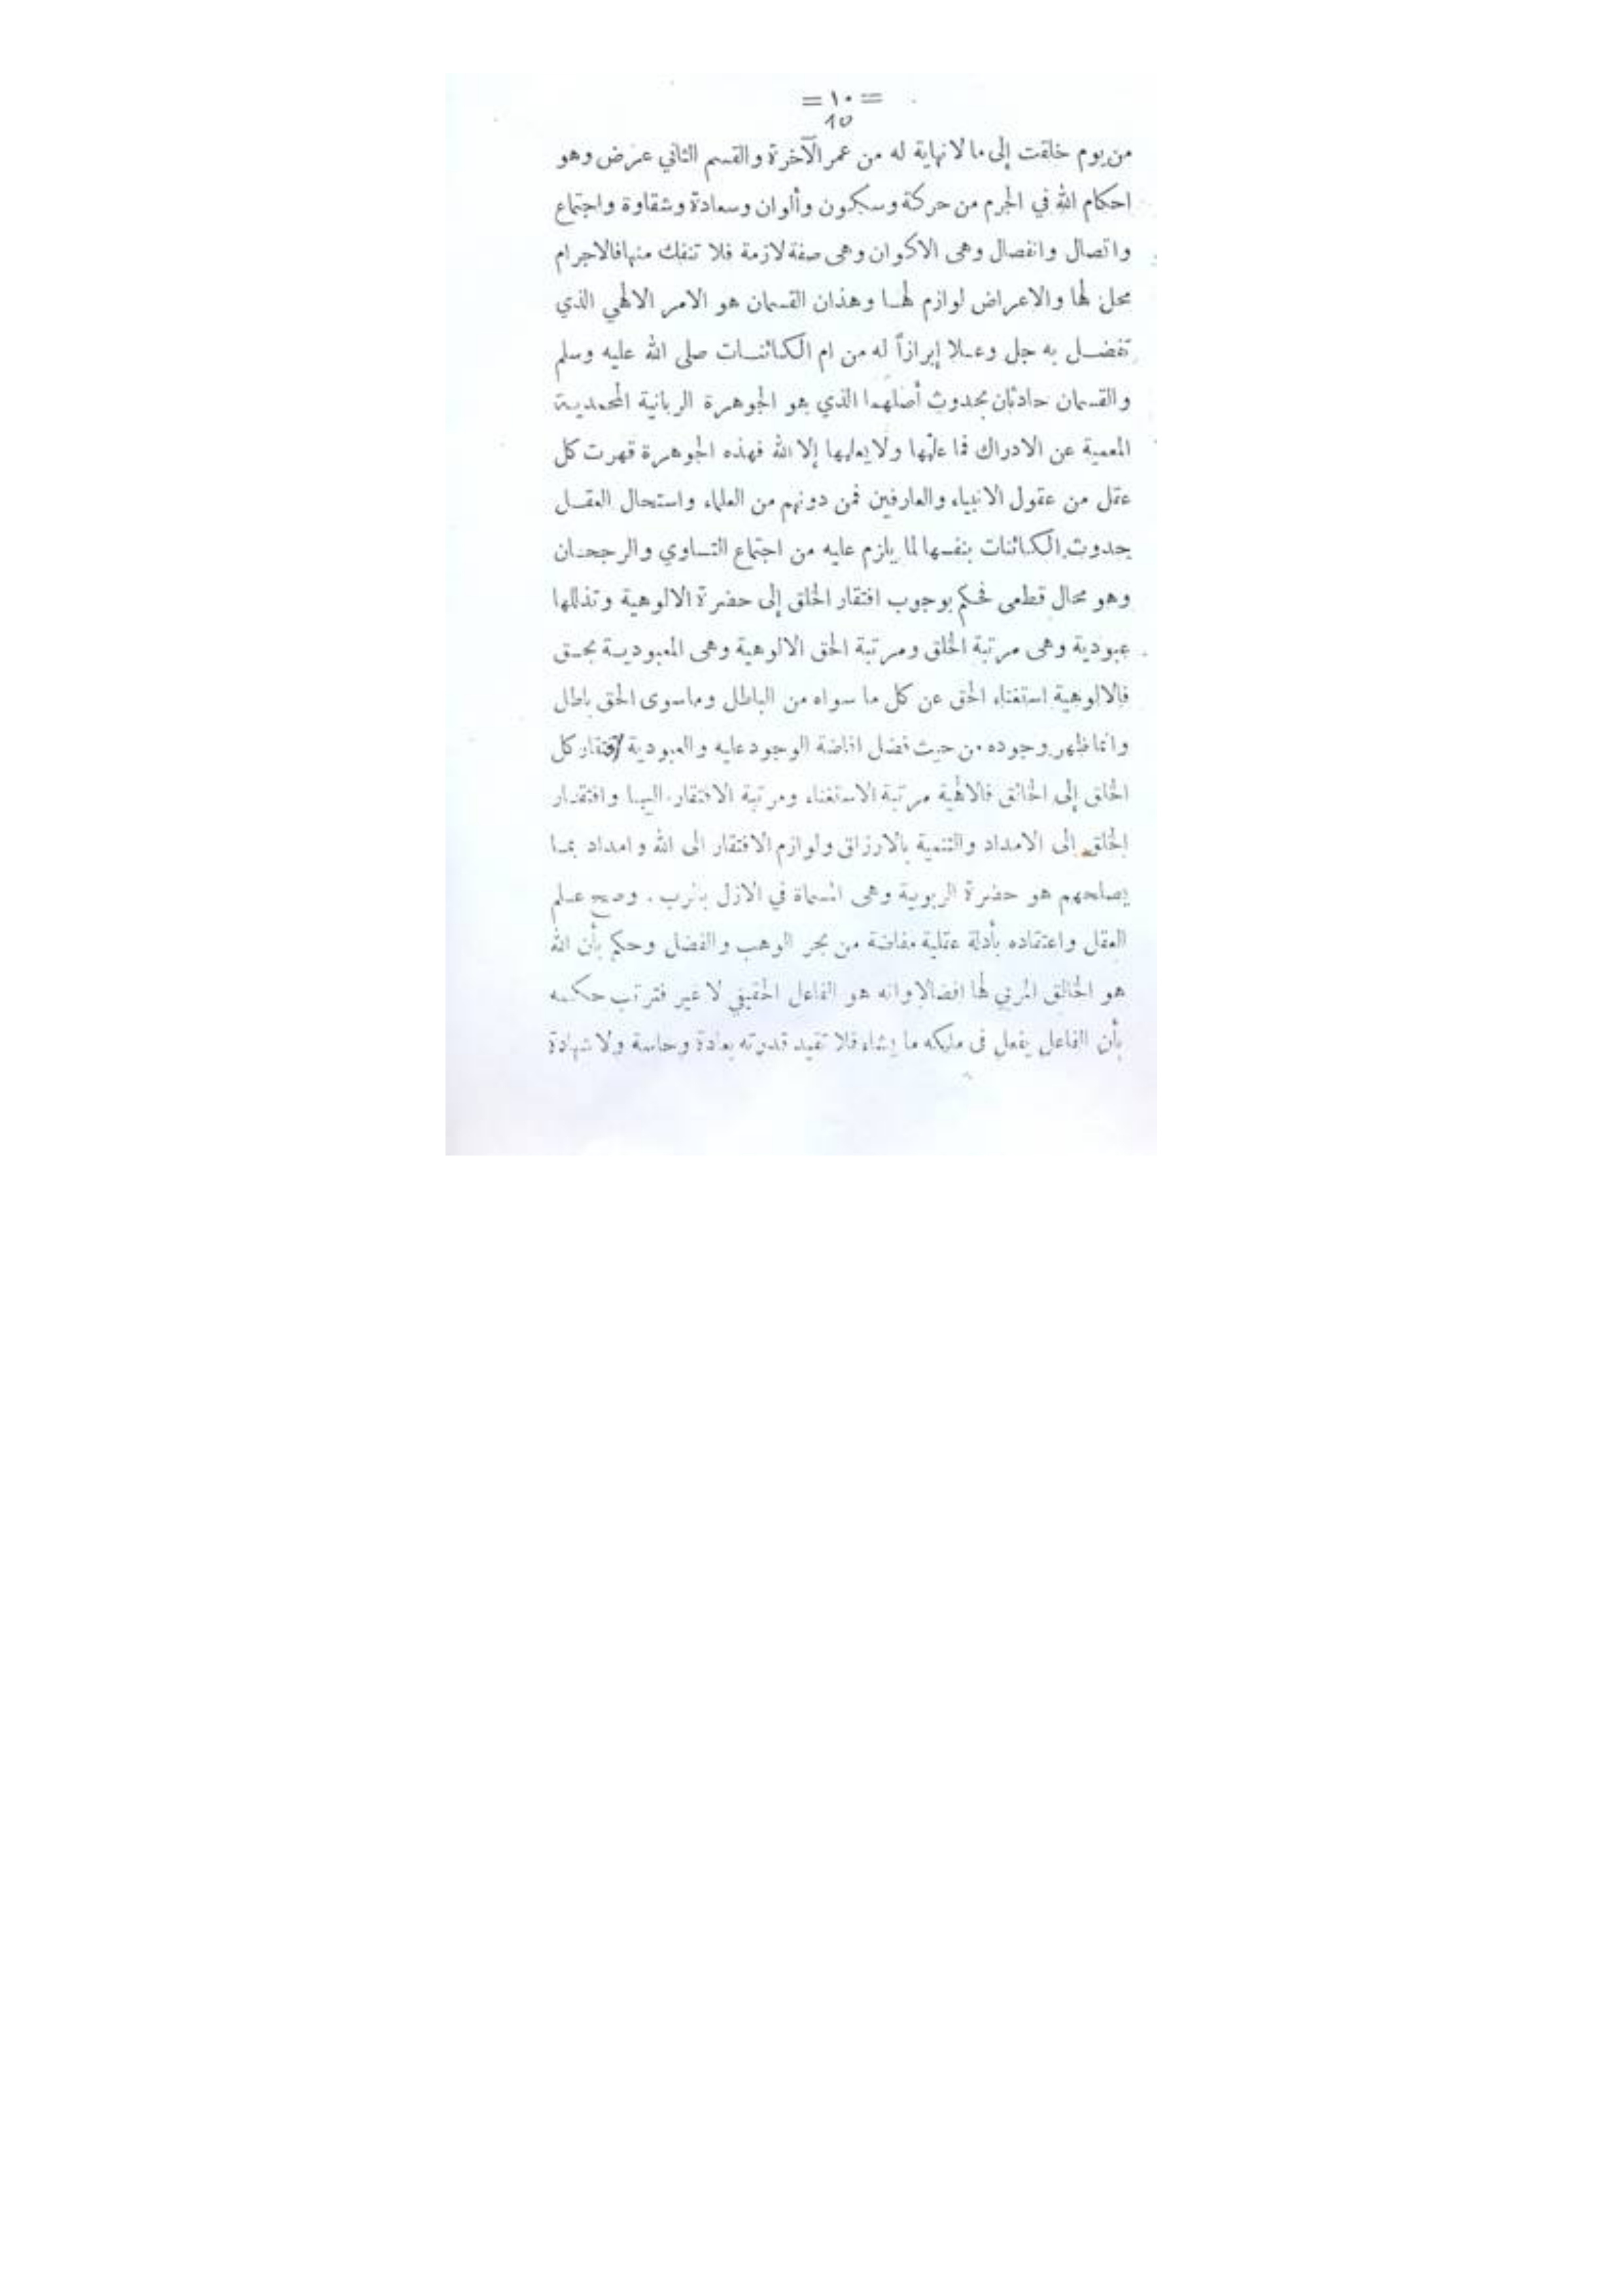 = ١٠ =
10
من يوم خلقت إلى ما لا نهاية له من عمر الآخرة والقسم الثاني عرض وهو
احكام الله في الجرم من حركة وسكون وألوان وسعادة وشقاوة واجتماع
واتصال وانفصال وهى الاكوان وهى صفة لازمة فلا تنفك منها فالاجرام
محل لها والاعراض لوازم لهـا وهذان القسمان هو الامر الالهي الذي
تفضـل به جل وعـلا إبرازاً له من ام الكـائنـات صلى الله عليه وسلم
والقسمان حادثان بحدوث أصلهما الذي هو الجوهرة الربانية المحمديـة
المعمية عن الادراك فما علمها ولا يعلمها إلا الله فهذه الجوهرة قهرت كل
عقل من عقول الانبياء والعارفين فمن دونهم من العلماء واستحال العقـل
حدوث الكـائنات بنفسها لما يلزم عليه من اجتماع التساوي والرجحـان
وهو محال قطعى فحكم بوجوب افتقار الخلق إلى حضرة الالوهية وتذللها
عبودية وهى مرتبة الخلق ومرتبة الحق الالوهية وهى المعبوديـة بحـق
فالالوهية استغناء الحق عن كل ما سواه من الباطل وماسوى الحق باطل
وانما ظهر وجوده من حيث فضل افاضة الوجود عليه والعبودية افتقار كل
الخلق إلى الخالق فالالهية مرتبة الاستغناء ومرتبة الافتقار اليهـا وافتقـار
الخلق الى الامداد والتنمية بالارزاق ولوازم الافتقار الى الله وامداد بمـا
يصلحهم هو حضرة الربوبية وهى المسماة في الازل بالرب . وصح عـلم
العقل واعتقاده بأدلة عقلية مفاضة من بحر الوهب والفضل وحكم بأن الله
هو الخالق المربي لها افضالا وانه هو الفاعل الحقيقي لا غير فترتب حكـمه
بأن الفاعل يفعل فى ملكه ما يشاء فلا تقيد قدرته بعادة وحاسة ولا شهادة